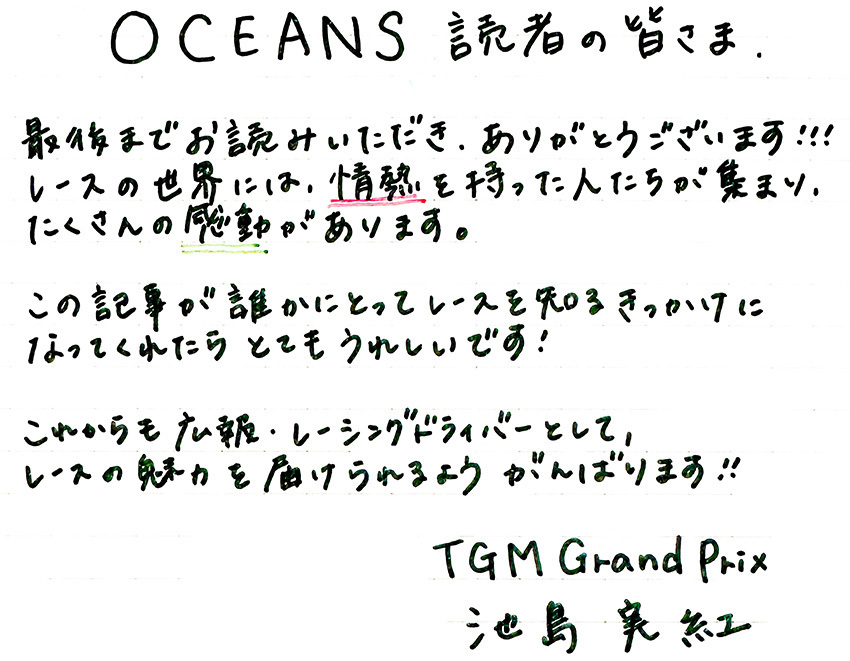 OCEANS 読者の皆さま.
最後までお読みいただき、ありがとうございます!!!
レースの世界には、情熱を持った人たちが集まり、
たくさんの感動があります。
この記事が誰かにとってレースを知るきっかけに
なってくれたら とても うれしいです!
これからも 広報・レーシングドライバーとして、
レースの魅力を届けられるよう がんばります!!
TGM Grand Prix
池島 実紅